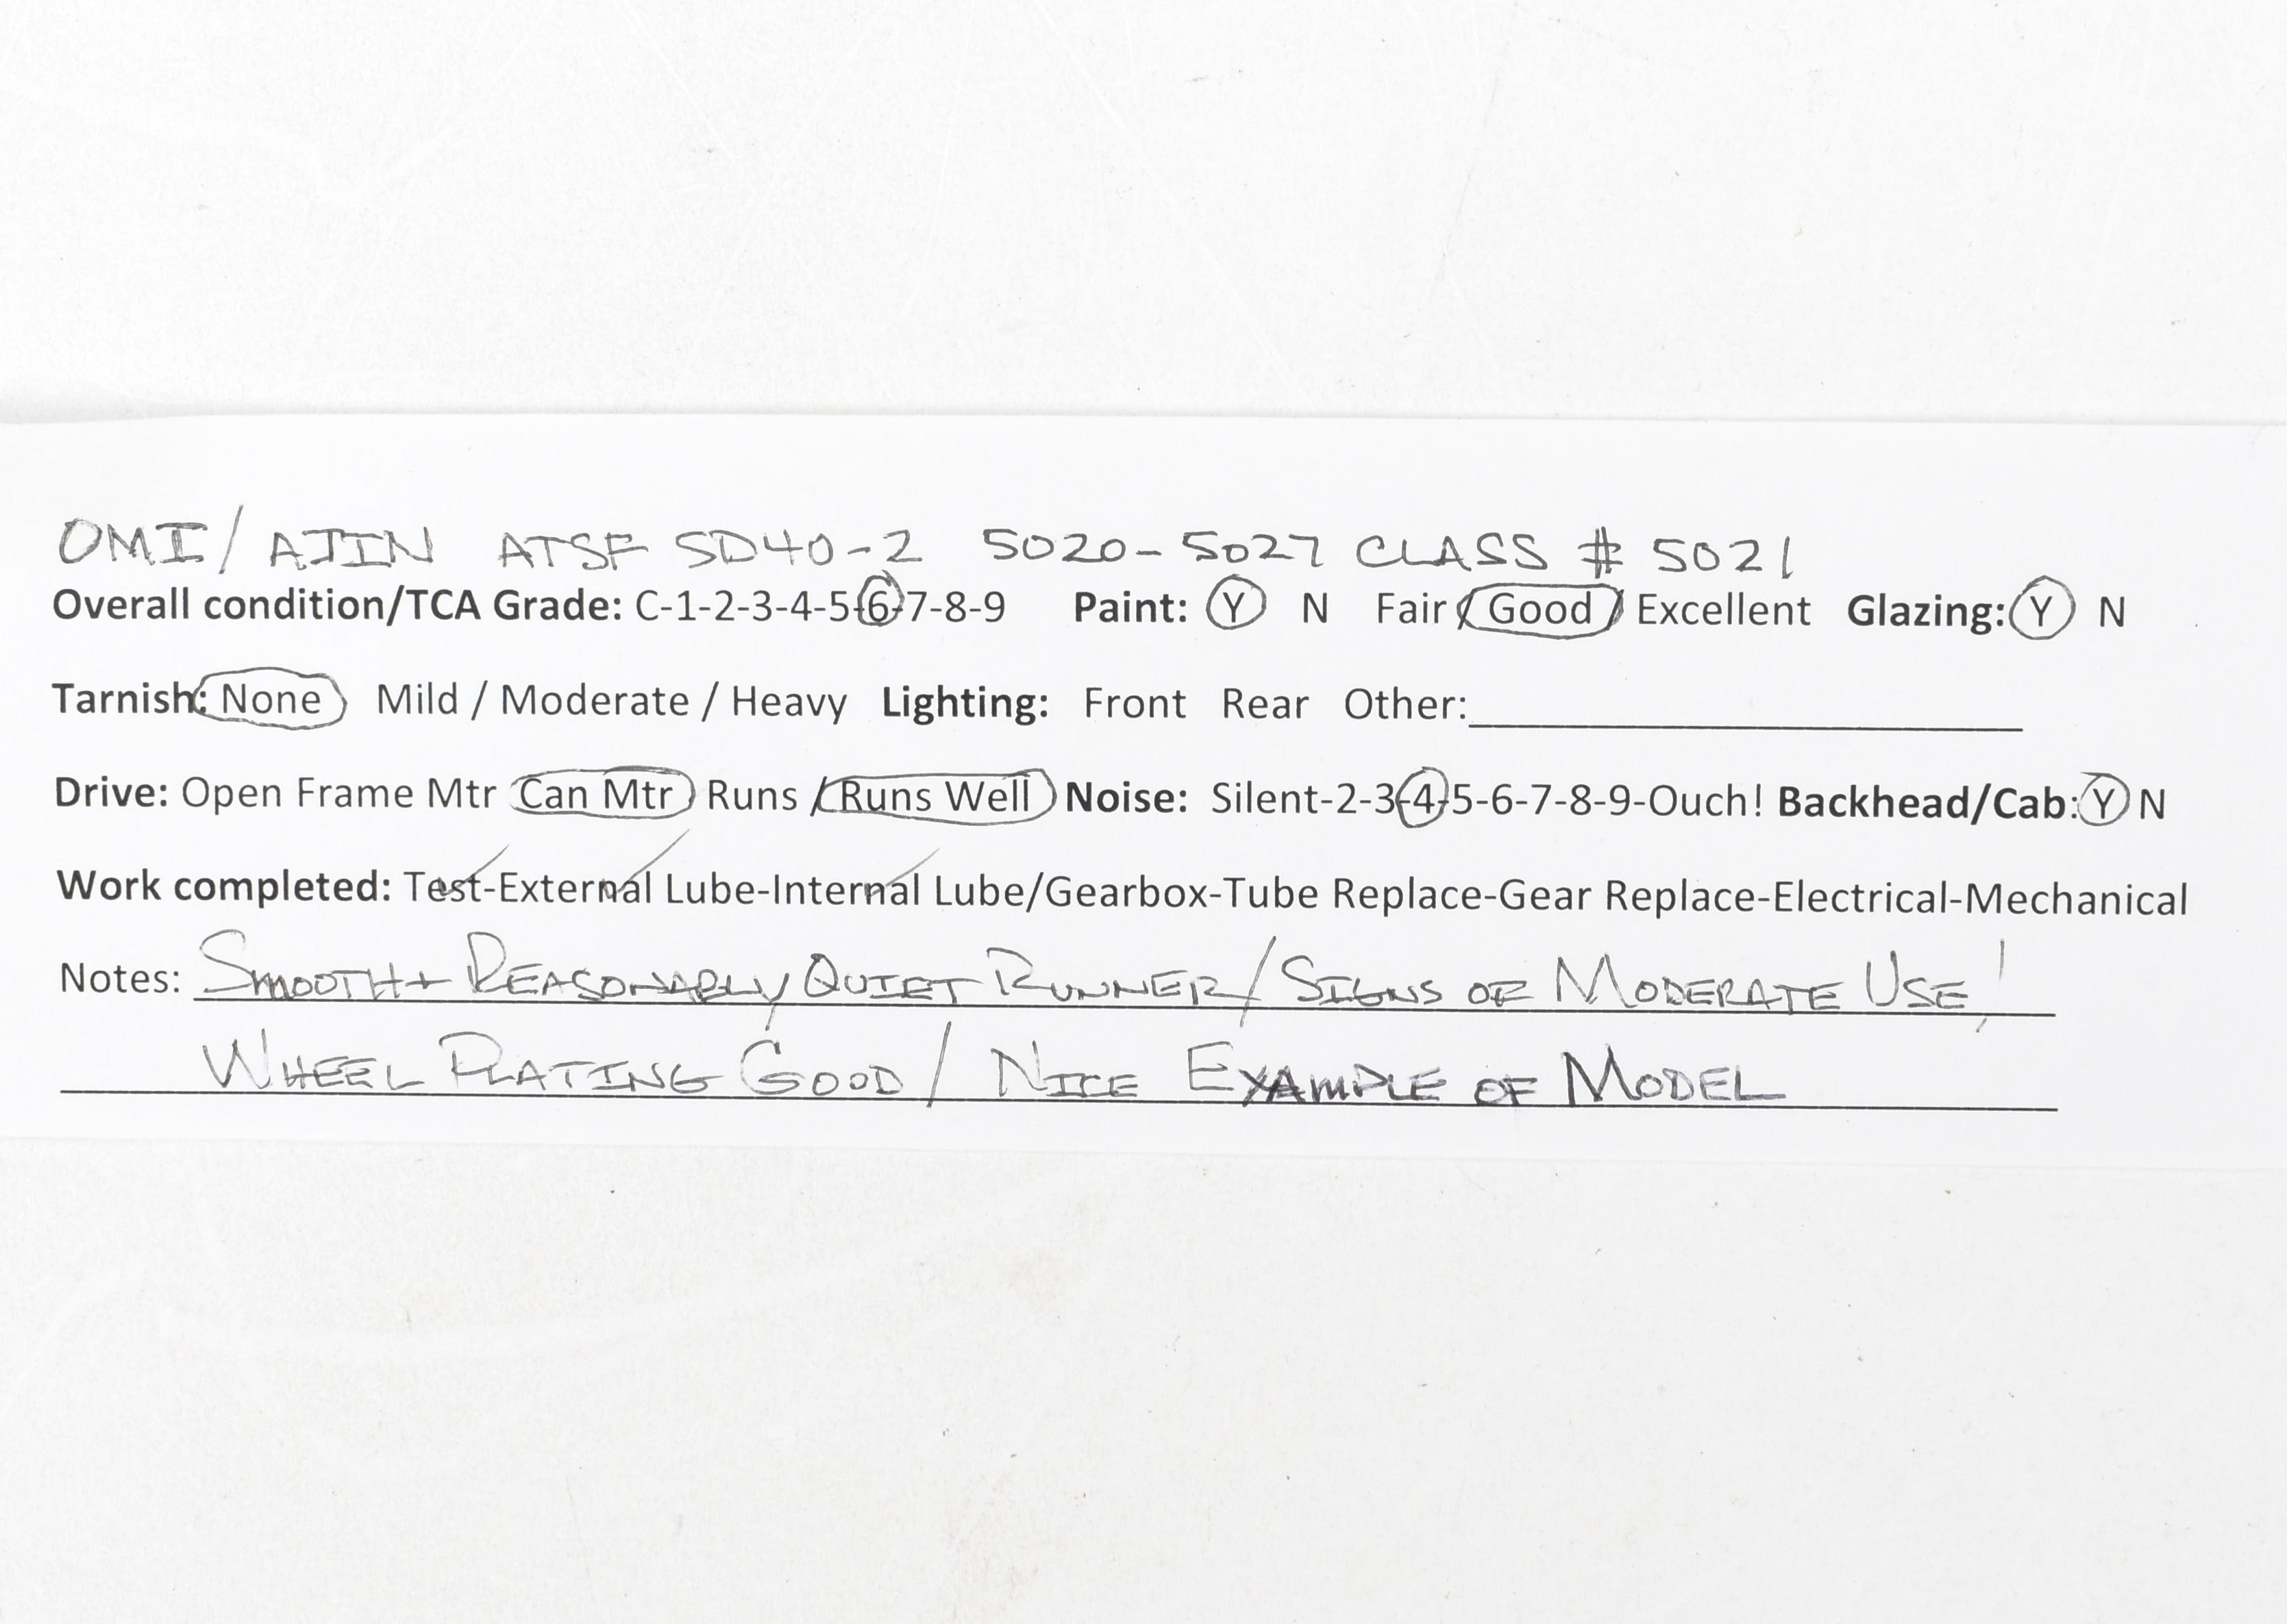 OMI/AJIN ATSF SD40-2 5020-5027 CLASS # 5021
Overall condition/TCA Grade: C-1-2-3-4-5-6-7-8-9 Paint: Y N Fair / Good / Excellent Glazing: Y N
Tarnish: None Mild / Moderate / Heavy Lighting: Front Rear Other:
Drive: Open Frame Mtr Can Mtr Runs / Runs Well Noise: Silent-2-3-4-5-6-7-8-9-Ouch! Backhead/Cab: Y N
Work completed: Test-External Lube-Internal Lube/Gearbox-Tube Replace-Gear Replace-Electrical-Mechanical
Notes: SMOOTH + REASONABLY QUIET RUNNER/SIGNS OF MODERATE USE/
WHEEL PLATING GOOD / NICE EXAMPLE OF MODEL